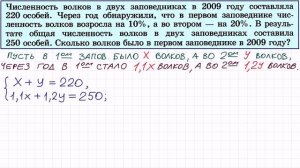 Численность волков в двух заповедниках в 2009 году составляла
220 особей. Через год обнаружили, что в первом заповеднике чис-
ленность волков возросла на 10%, а во втором — на 20%. В резуль-
тате общая численность волков в двух заповедниках составила
250 особей. Сколько волков было в первом заповеднике в 2009 году?
ПУСТЬ В 1ом ЗАПОВ. БЫЛО X ВОЛКОВ, А ВО 2ом У ВОЛКОВ,
ЧЕРЕЗ ГОД В 1ом СТАЛО 1,1X ВОЛКОВ, А ВО 2ом 1,2У ВОЛКОВ.
{ X + У = 220,
1,1X + 1,2У = 250;